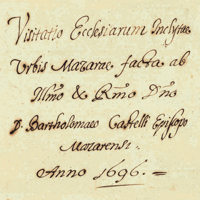 Visitatio Ecclesiarum Inclytae
Urbis Mazarae facta ab
Illmo & Rmo Dño
D. Bartholomaeo Castelli Episcopo
Mazarensi
Anno 1696.